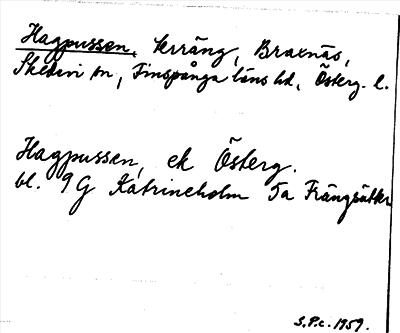 Hagpussen, terräng, Braxnäs,
Skedevi sn, Finspånga läns hd, Österg. l.
Hagpussen, ek Österg.
bl. 9G Katrineholm 5a Frängsätter
S.P.c. 1959.